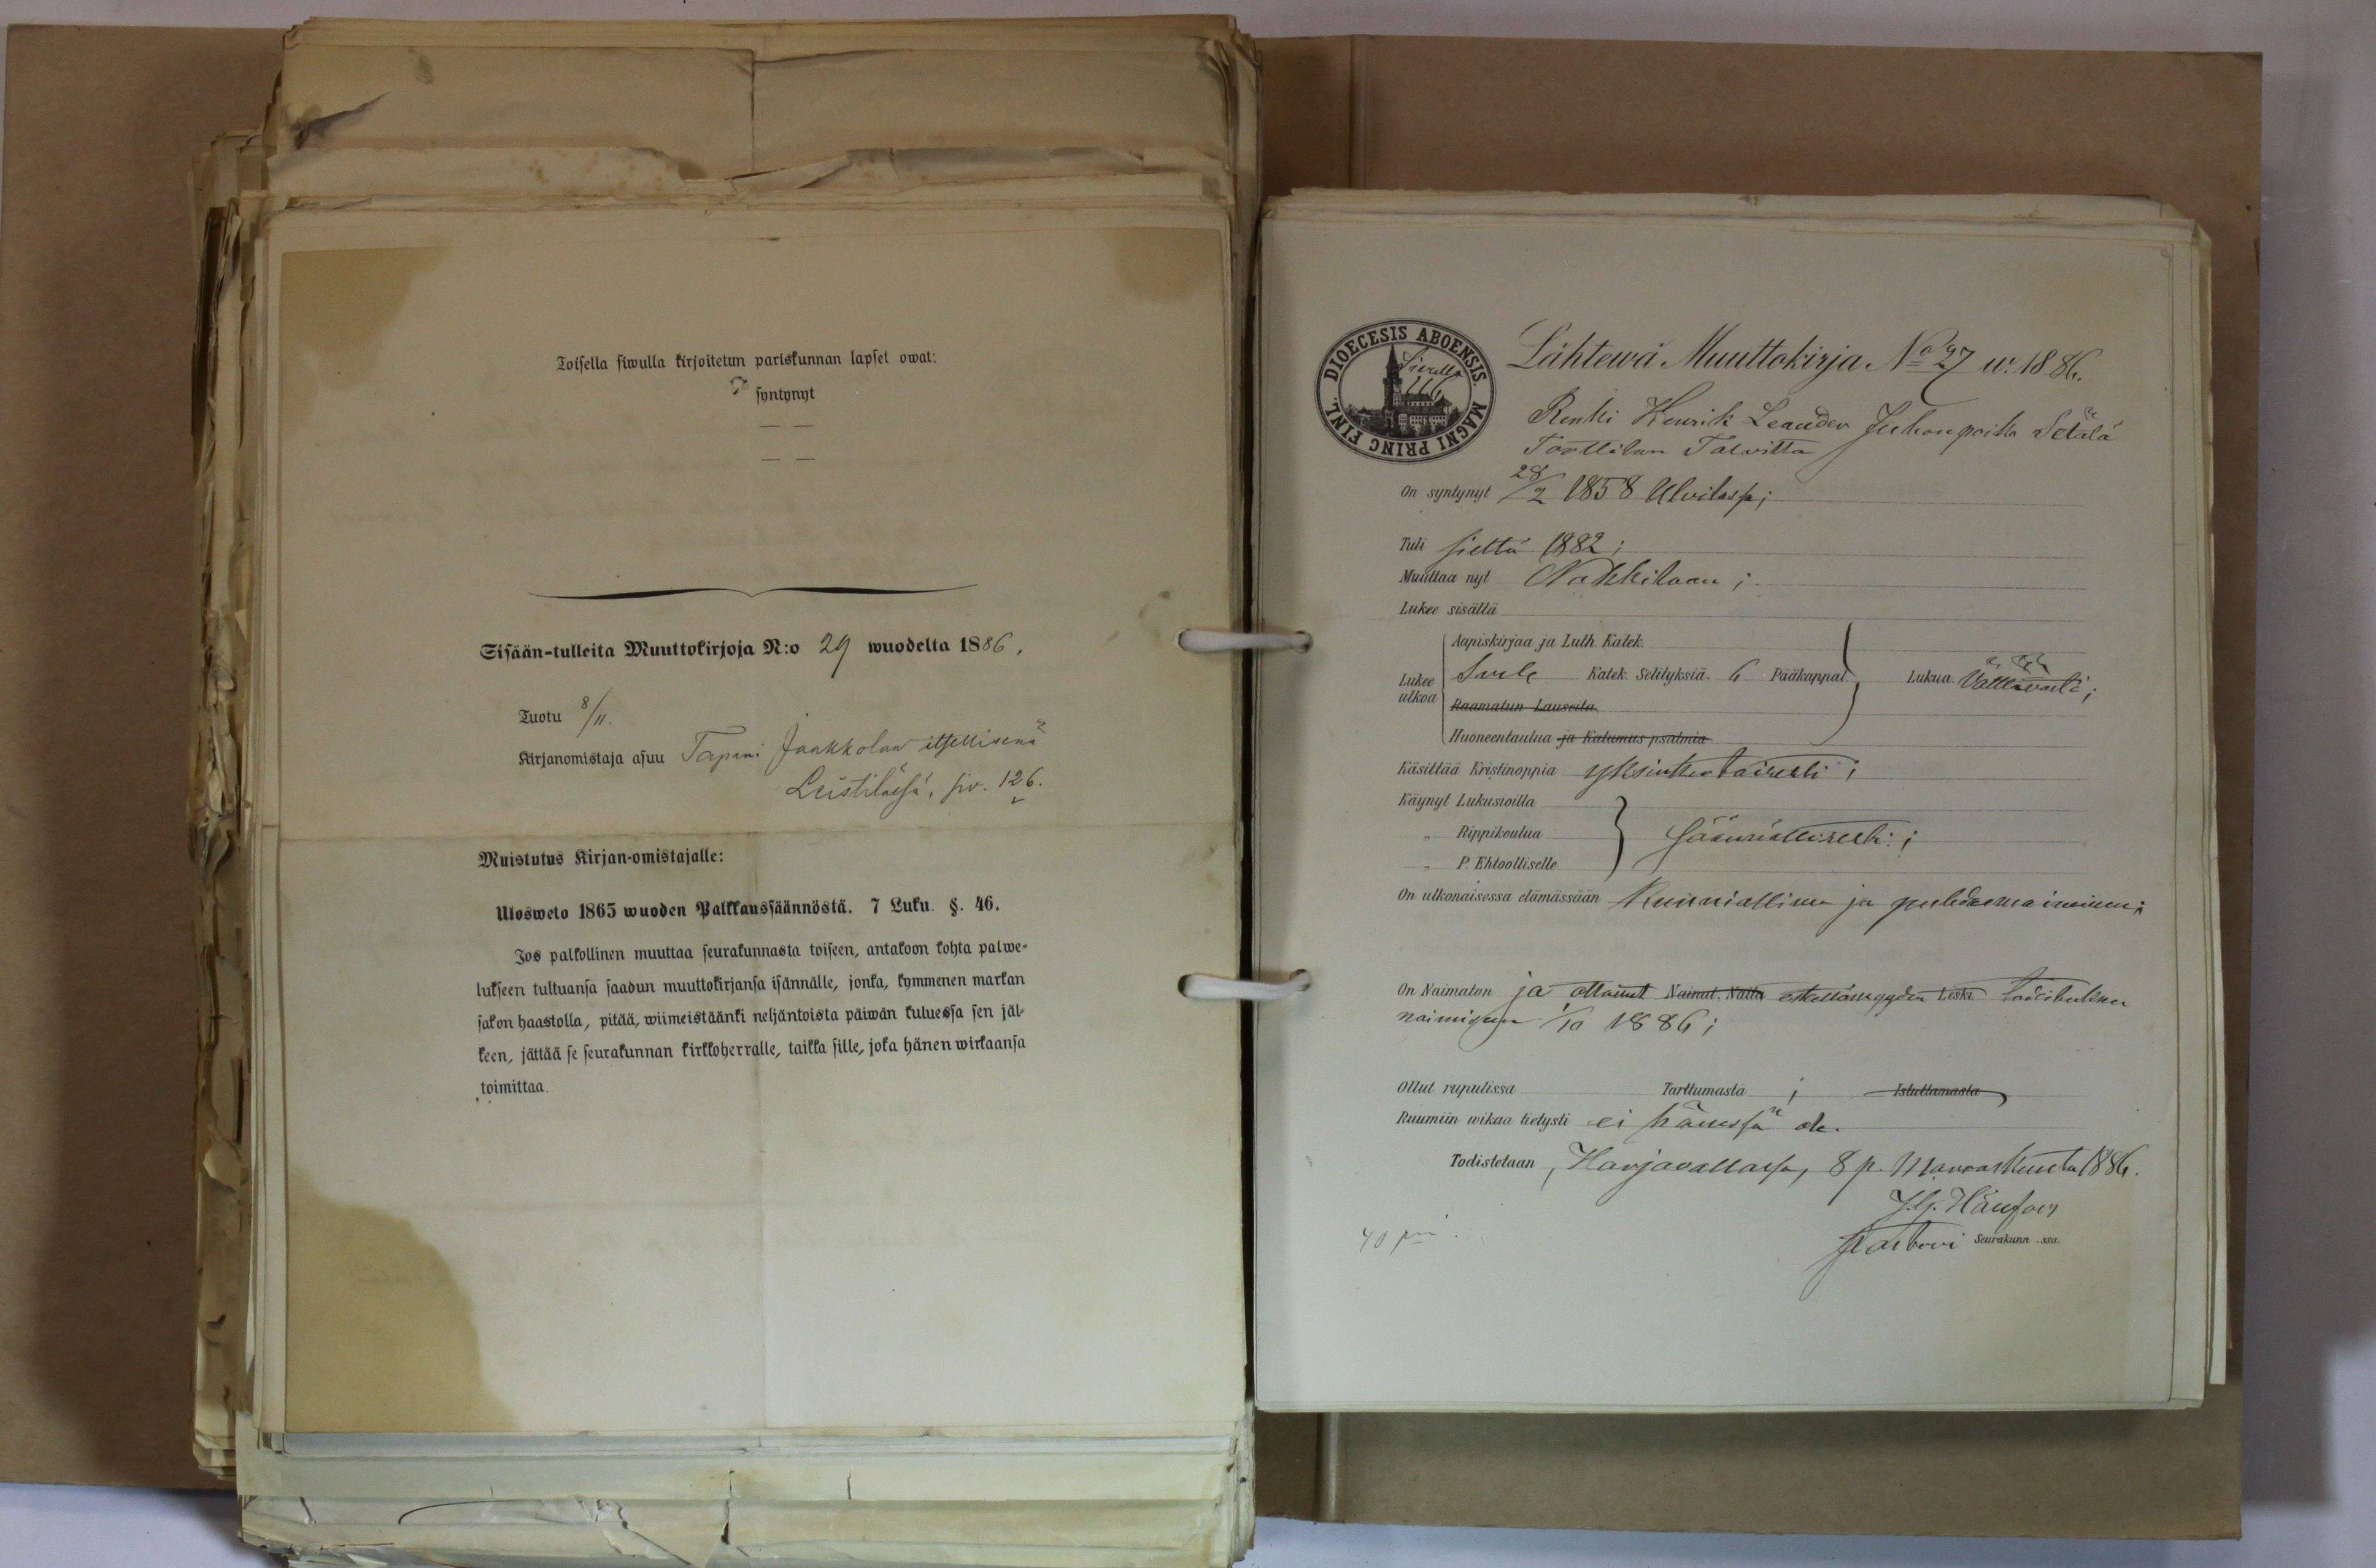 Toisella siwulla kirjoitetun pariskunnan lapset owat:
syntynyt
— —
— —
Sisään-tulleita Muuttokirjoja N:o 29 wuodelta 1886.
Tuotu 8/11.
Kirjanomistaja asuu Tapani Jaakkolan itsellisenä
Leistilässä, siv. 126.
Muistutus Kirjan-omistajalle:
Ulosweto 1865 wuoden Palkkaussäännöstä. 7 Luku. §. 46.
Jos palkollinen muuttaa seurakunnasta toiseen, antakoon kohta palwe-
lukseen tultuansa saadun muuttokirjansa isännälle, jonka, kymmenen markan
sakon haastolla, pitää, wiimeistäänki neljäntoista päiwän kuluessa sen jäl-
keen, jättää se seurakunnan kirkkoherralle, taikka sille, joka hänen wirkaansa
toimittaa.
DIOECESIS ABOENSIS. MAGNI PRINC FINL.
Lähtewä Muuttokirja No 27 w. 1886.
Renki Henrik Leander Juhonpoika Setälä
Torttilan Talvitta
On syntynyt 28/2 1858 Ulvilassa;
Tuli sieltä 1882;
Muuttaa nyt Nakkilaan;
Lukee sisältä
Aapiskirjaa ja Luth. Katek.
Lukee ulkoa Katek. Selityksiä. 6 Pääkappal. Lukua. Välttävästi;
Raamatun Lauseita
Huoneentaulua ja Katumus psalmia
Käsittää Kristinoppia yksinkertaisesti;
Käynyt Lukusioilla
„ Rippikoulua säännöllisesti;
„ P. Ehtoolliselle
On ulkonaisessa elämässään Kunniallinen ja puhdasmaineinen;
On Naimaton ja ottanut Nainut. Naitu esteettömyyden Leski todistuksen
naimiseen 1/10 1886;
Ollut rupulissa Tarttumasta ; Istuttamasta
Ruumiin wikaa tietysti ei hänessä ole.
Todistetaan, Harjavallassa, 8 p. Marraskuuta 1886.
Pastori Seurakunn -ssa.
40 pni.